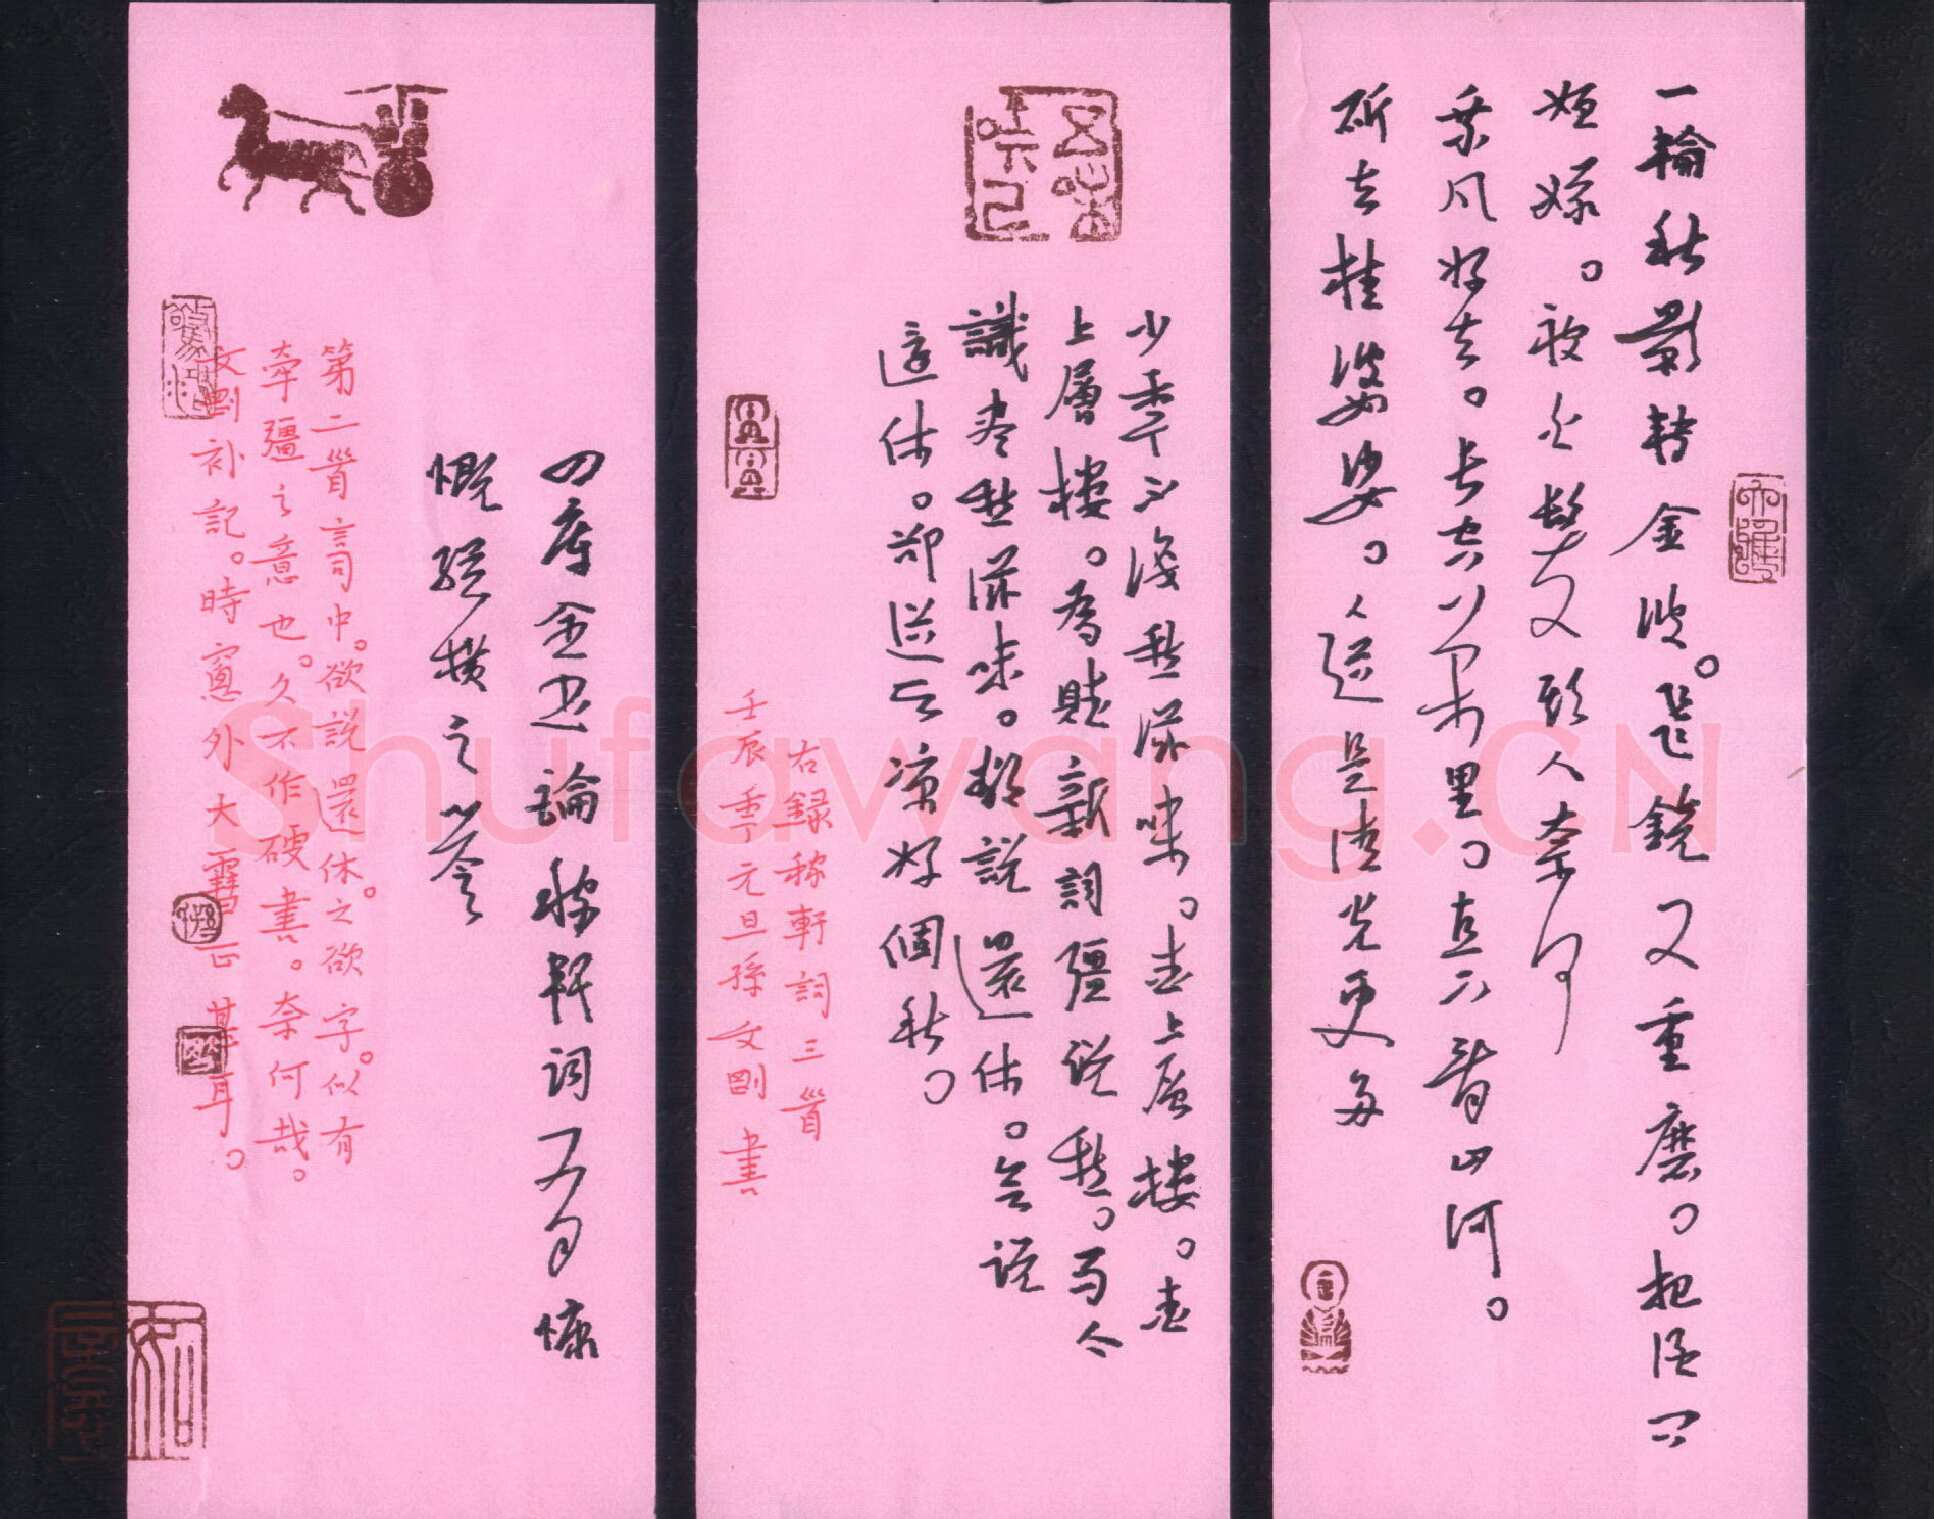 一輪秋影轉金波。飛鏡又重磨。把酒問
姮娥。被白髮欺人奈何
乘風好去。長空萬里。直下看山河。
斫去桂婆娑。人道是清光更多
少年不識愁滋味。愛上層樓。愛
上層樓。為賦新詞彊說愁。而今
識盡愁滋味。欲說還休。欲說
還休。却道天涼好個秋。
右録稼軒詞三首
壬辰季元旦孫文剛書
四庫全書論稼軒詞有慷
慨縱橫之譽
第二首詞中。欲說還休。之欲字。似有
牽彊之意也。久不作硬書。奈何哉。
文剛補記。時窗外大雪正甚耳。
Shufawang.CN